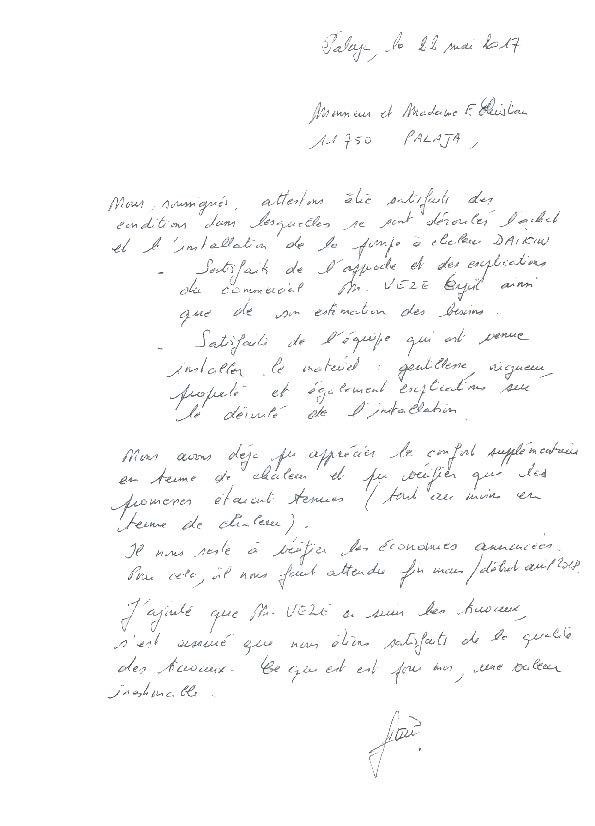 Palaja, le 22 mai 2017
Monsieur et Madame F. Christian
11750 PALAJA,
Nous, soussignés, attestons être satisfaits des
conditions dans lesquelles se sont déroulés l'achat
et l'installation de la pompe à chaleur DAIKIN
- Satisfaits de l'approche et des explications
du commercial Mr. VEZE Cyril ainsi
que de son estimation des besoins.
- Satisfaits de l'équipe qui est venue
installer le matériel : gentillesse, rigueur,
propreté et également explications sur
le déroulé de l'installation.
Nous avons déjà pu apprécier le confort supplémentaire
en terme de chaleur et pu vérifier que les
promesses étaient tenues (tout au moins en
terme de chaleur).
Il nous reste à vérifier les économies annoncées.
Pour cela, il nous faut attendre fin mars/début avril 2018.
J'ajoute que Mr. VEZE a suivi les travaux,
s'est assuré que nous étions satisfaits de la qualité
des travaux. Ce qui est est pour moi, une valeur
inestimable.